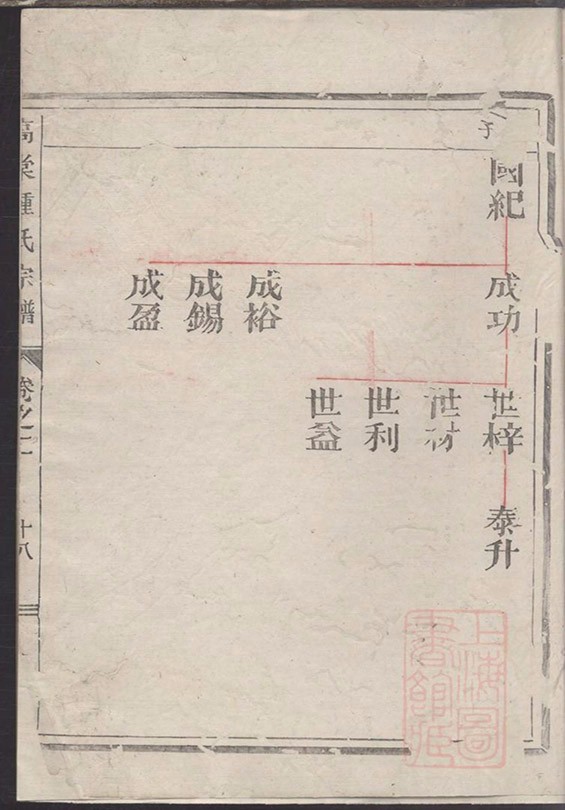 子
國紀
成功
成裕
成錫
成盈
世梓
世材
世利
世益
泰升
高梁鍾氏宗譜
卷之二
十八
上海圖
書館藏